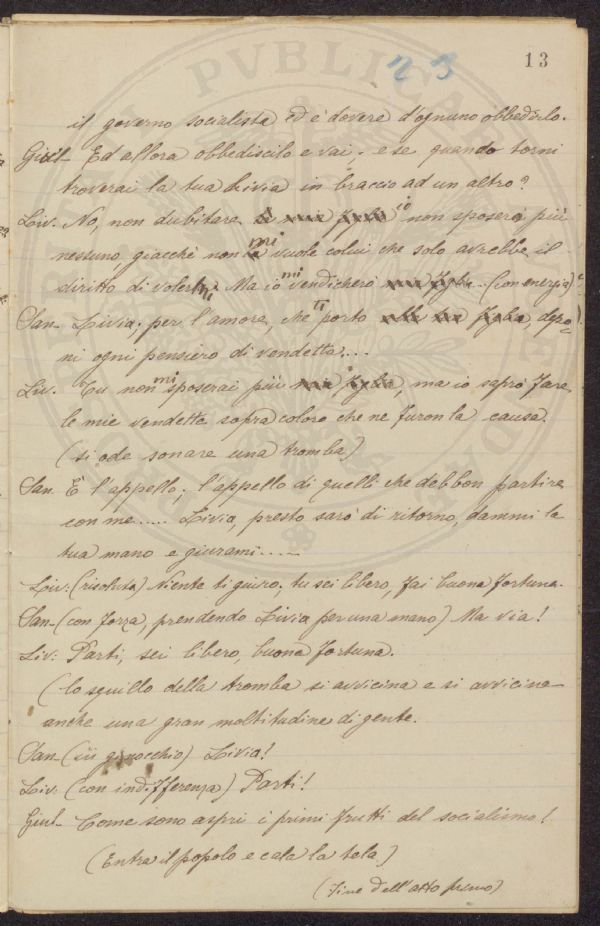 23
13
il governo socialista ed è dovere d'ognuno obbedirlo.
Giul- Ed allora obbediscilo e vai; e se quando torni
troverai la tua Livia in braccio ad un altro?
Liv. No, non dubitare io non sposerò più
nessuno giacchè non mi vuole colui che solo avrebbe il
diritto di volermi. Ma io mi vendicherò ... (con energia)
San- Livia, per l'amore, che ti porto depo=
ni ogni pensiero di vendetta....
Liv. Tu non mi sposerai più, ma io saprò fare
le mie vendette sopra coloro che ne furon la causa.
(si ode sonare una tromba)
San È l'appello, l'appello di quelli che debbon partire
con me..... Livia, presto sarò di ritorno, dammi la
tua mano e giurami.....
Liv: (risoluta) Niente ti giuro, tu sei libero, fai buona fortuna.
San- (con forza, prendendo Livia per una mano) Ma via!
Liv: Parti, sei libero, buona fortuna.
(lo squillo della tromba si avvicina e si avvicina
anche una gran moltitudine di gente.
San- (in ginocchio) Livia!
Liv. (con indifferenza) Parti!
Giul- Come sono aspri i primi frutti del socialismo!
(Entra il popolo e cala la tela)
(Fine dell'atto primo)